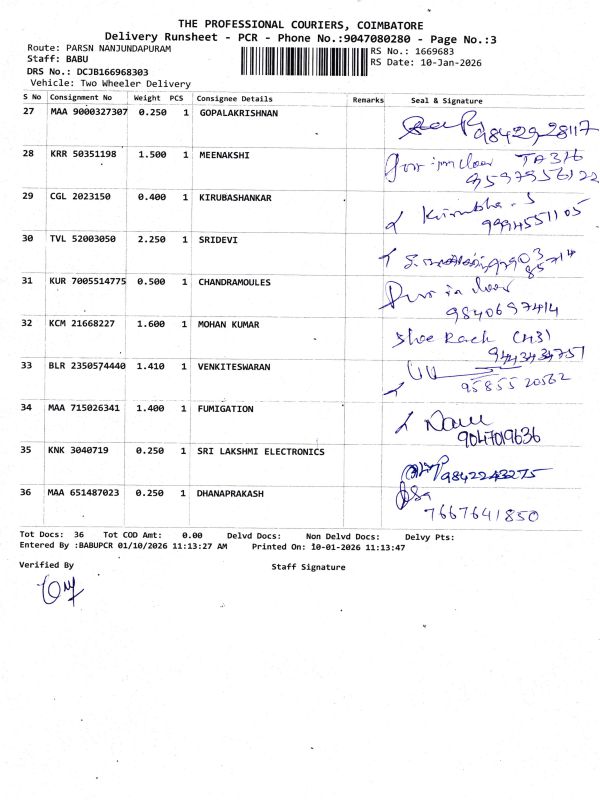 THE PROFESSIONAL COURIERS, COIMBATORE
Delivery Runsheet - PCR - Phone No.:9047080280 - Page No.:3
Route: PARSN NANJUNDAPURAM
RS No.: 1669683
Staff: BABU
RS Date: 10-Jan-2026
DRS No.: DCJB166968303
Vehicle: Two Wheeler Delivery
S No Consignment No Weight PCS Consignee Details Remarks Seal & Signature
27 MAA 9000327307 0.250 1 GOPALAKRISHNAN
9842928117
28 KRR 50351198 1.500 1 MEENAKSHI
TA316
9597956122
29 CGL 2023150 0.400 1 KIRUBASHANKAR
Kirubha. S
9994551105
30 TVL 52003050 2.250 1 SRIDEVI
31 KUR 7005514775 0.500 1 CHANDRAMOULES
in door
9840697414
32 KCM 21668227 1.600 1 MOHAN KUMAR
Shoe Rack
9443434751
33 BLR 2350574440 1.410 1 VENKITESWARAN
95855 20562
34 MAA 715026341 1.400 1 FUMIGATION
9047019636
35 KNK 3040719 0.250 1 SRI LAKSHMI ELECTRONICS
9842243275
36 MAA 651487023 0.250 1 DHANAPRAKASH
7667641850
Tot Docs: 36 Tot COD Amt: 0.00 Delvd Docs: Non Delvd Docs: Delvy Pts:
Entered By :BABUPCR 01/10/2026 11:13:27 AM Printed On: 10-01-2026 11:13:47
Verified By Staff Signature